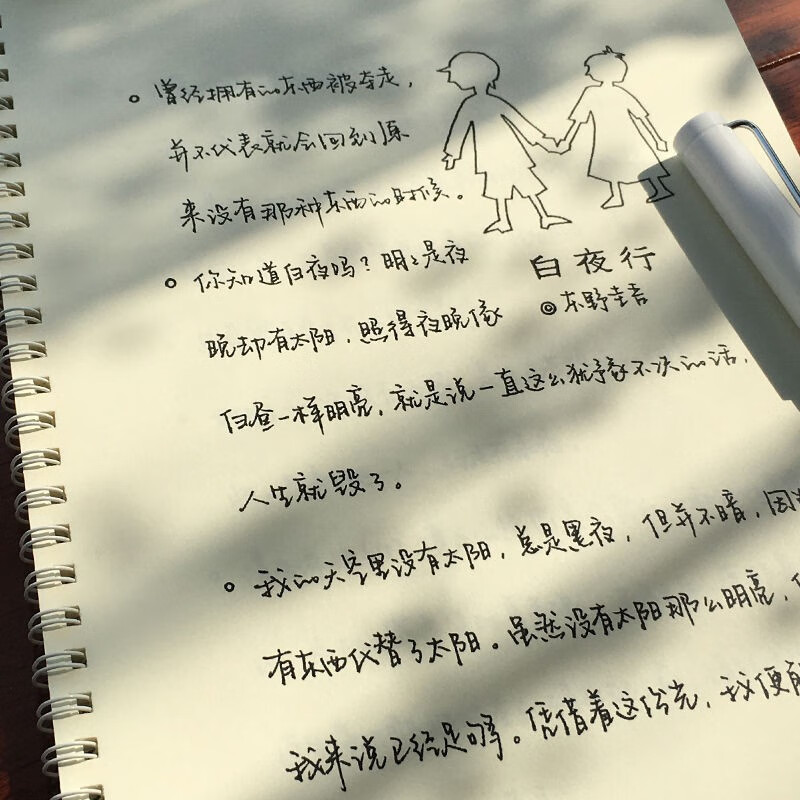 曾经拥有的东西被夺走，
并不代表就会回到原
来没有那种东西的时候。
你知道白夜吗？明明是夜
晚却有太阳，照得夜晚像
白夜行
©东野圭吾
白昼一样明亮，就是说一直这么犹予豫不决的话，
人生就毁了。
我的天空里没有太阳，总是黑夜，但并不暗，因
有东西代替了太阳。虽然没有太阳那么明亮，
我来说已经足够。凭借着这份光，我便